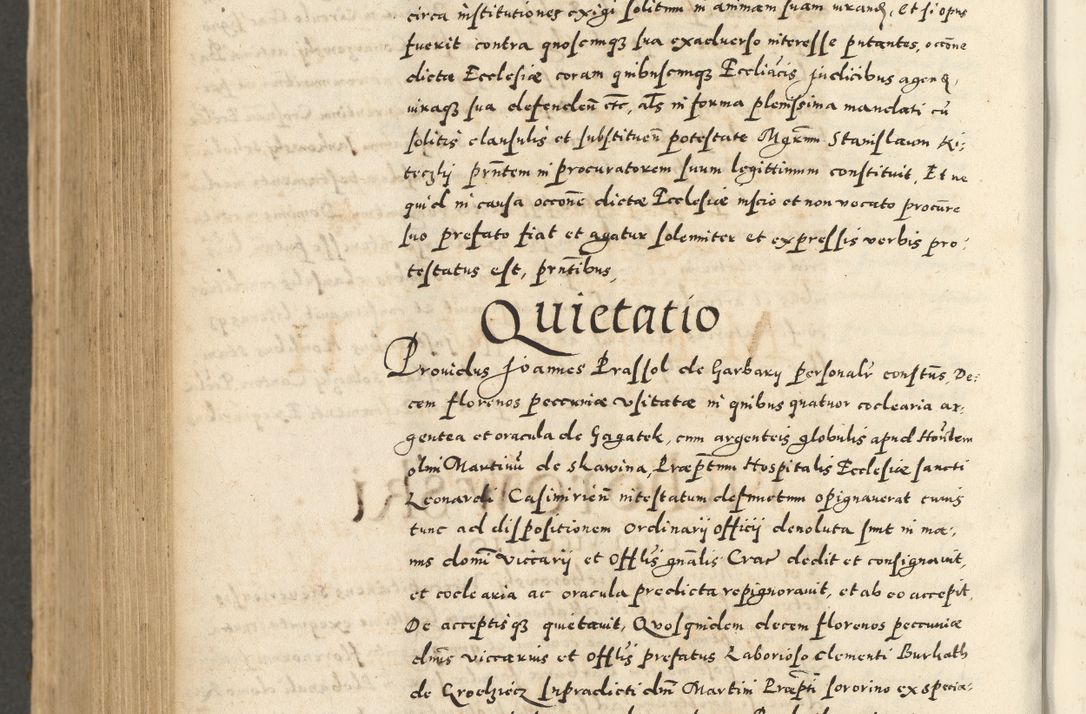 circa institutiones exigi solitum in animam suam iurandi, Et si opus
fuerit contra quoscunq; sua exadverso interesse putantes, occõne
dictæ Ecclesiæ coram quibuscunq; Eccliãcis judicibus agendi,
iuraq; sua defendeñ etc, als in forma plenissima mandati cũ
solitis clausulis et substitueñ potestate Mgrum Stanislaum Ki,,
teczky pñtem in procuratorem suum legittimum constituit, Et ne
quid in causa occõne dictæ Ecclesiæ inscio et non vocato procũre
suo prefato fiat et agatur solemniter et expressis verbis pro,,
testatus est, pñtibus,
Quietatio
Providus Joannes Prassol de Garbary personalr constũs, De,,
cem florenos peccuniæ usitatæ in quibus quatuor coclearia ar,,
gentea et oracula de Gagatek, cum argenteis globulis apud Hon̄lem
olim Martinũ de Skawina, Præp̃tum Hospitalis Ecclesiæ sancti
Leonardi Casimirieñ intestatum defunctum opignaverat cuius
tunc ad dispositionem Ordinarij officij devoluta sunt in ma,,
nus domi viccarij et Offlis gñalis Crac dedit et consignavit,
et coclearia ac oracula predicta repignoravit, et ab eo accepit,
De acceptisq; quietavit, Quosquidem decem florenos peccuniæ
dnus viccarius et Offlis prefatus Laborioso Clementi Burkath
de Grodziecz supradicti dni Martini Præp̃ti sororino ex specia,,